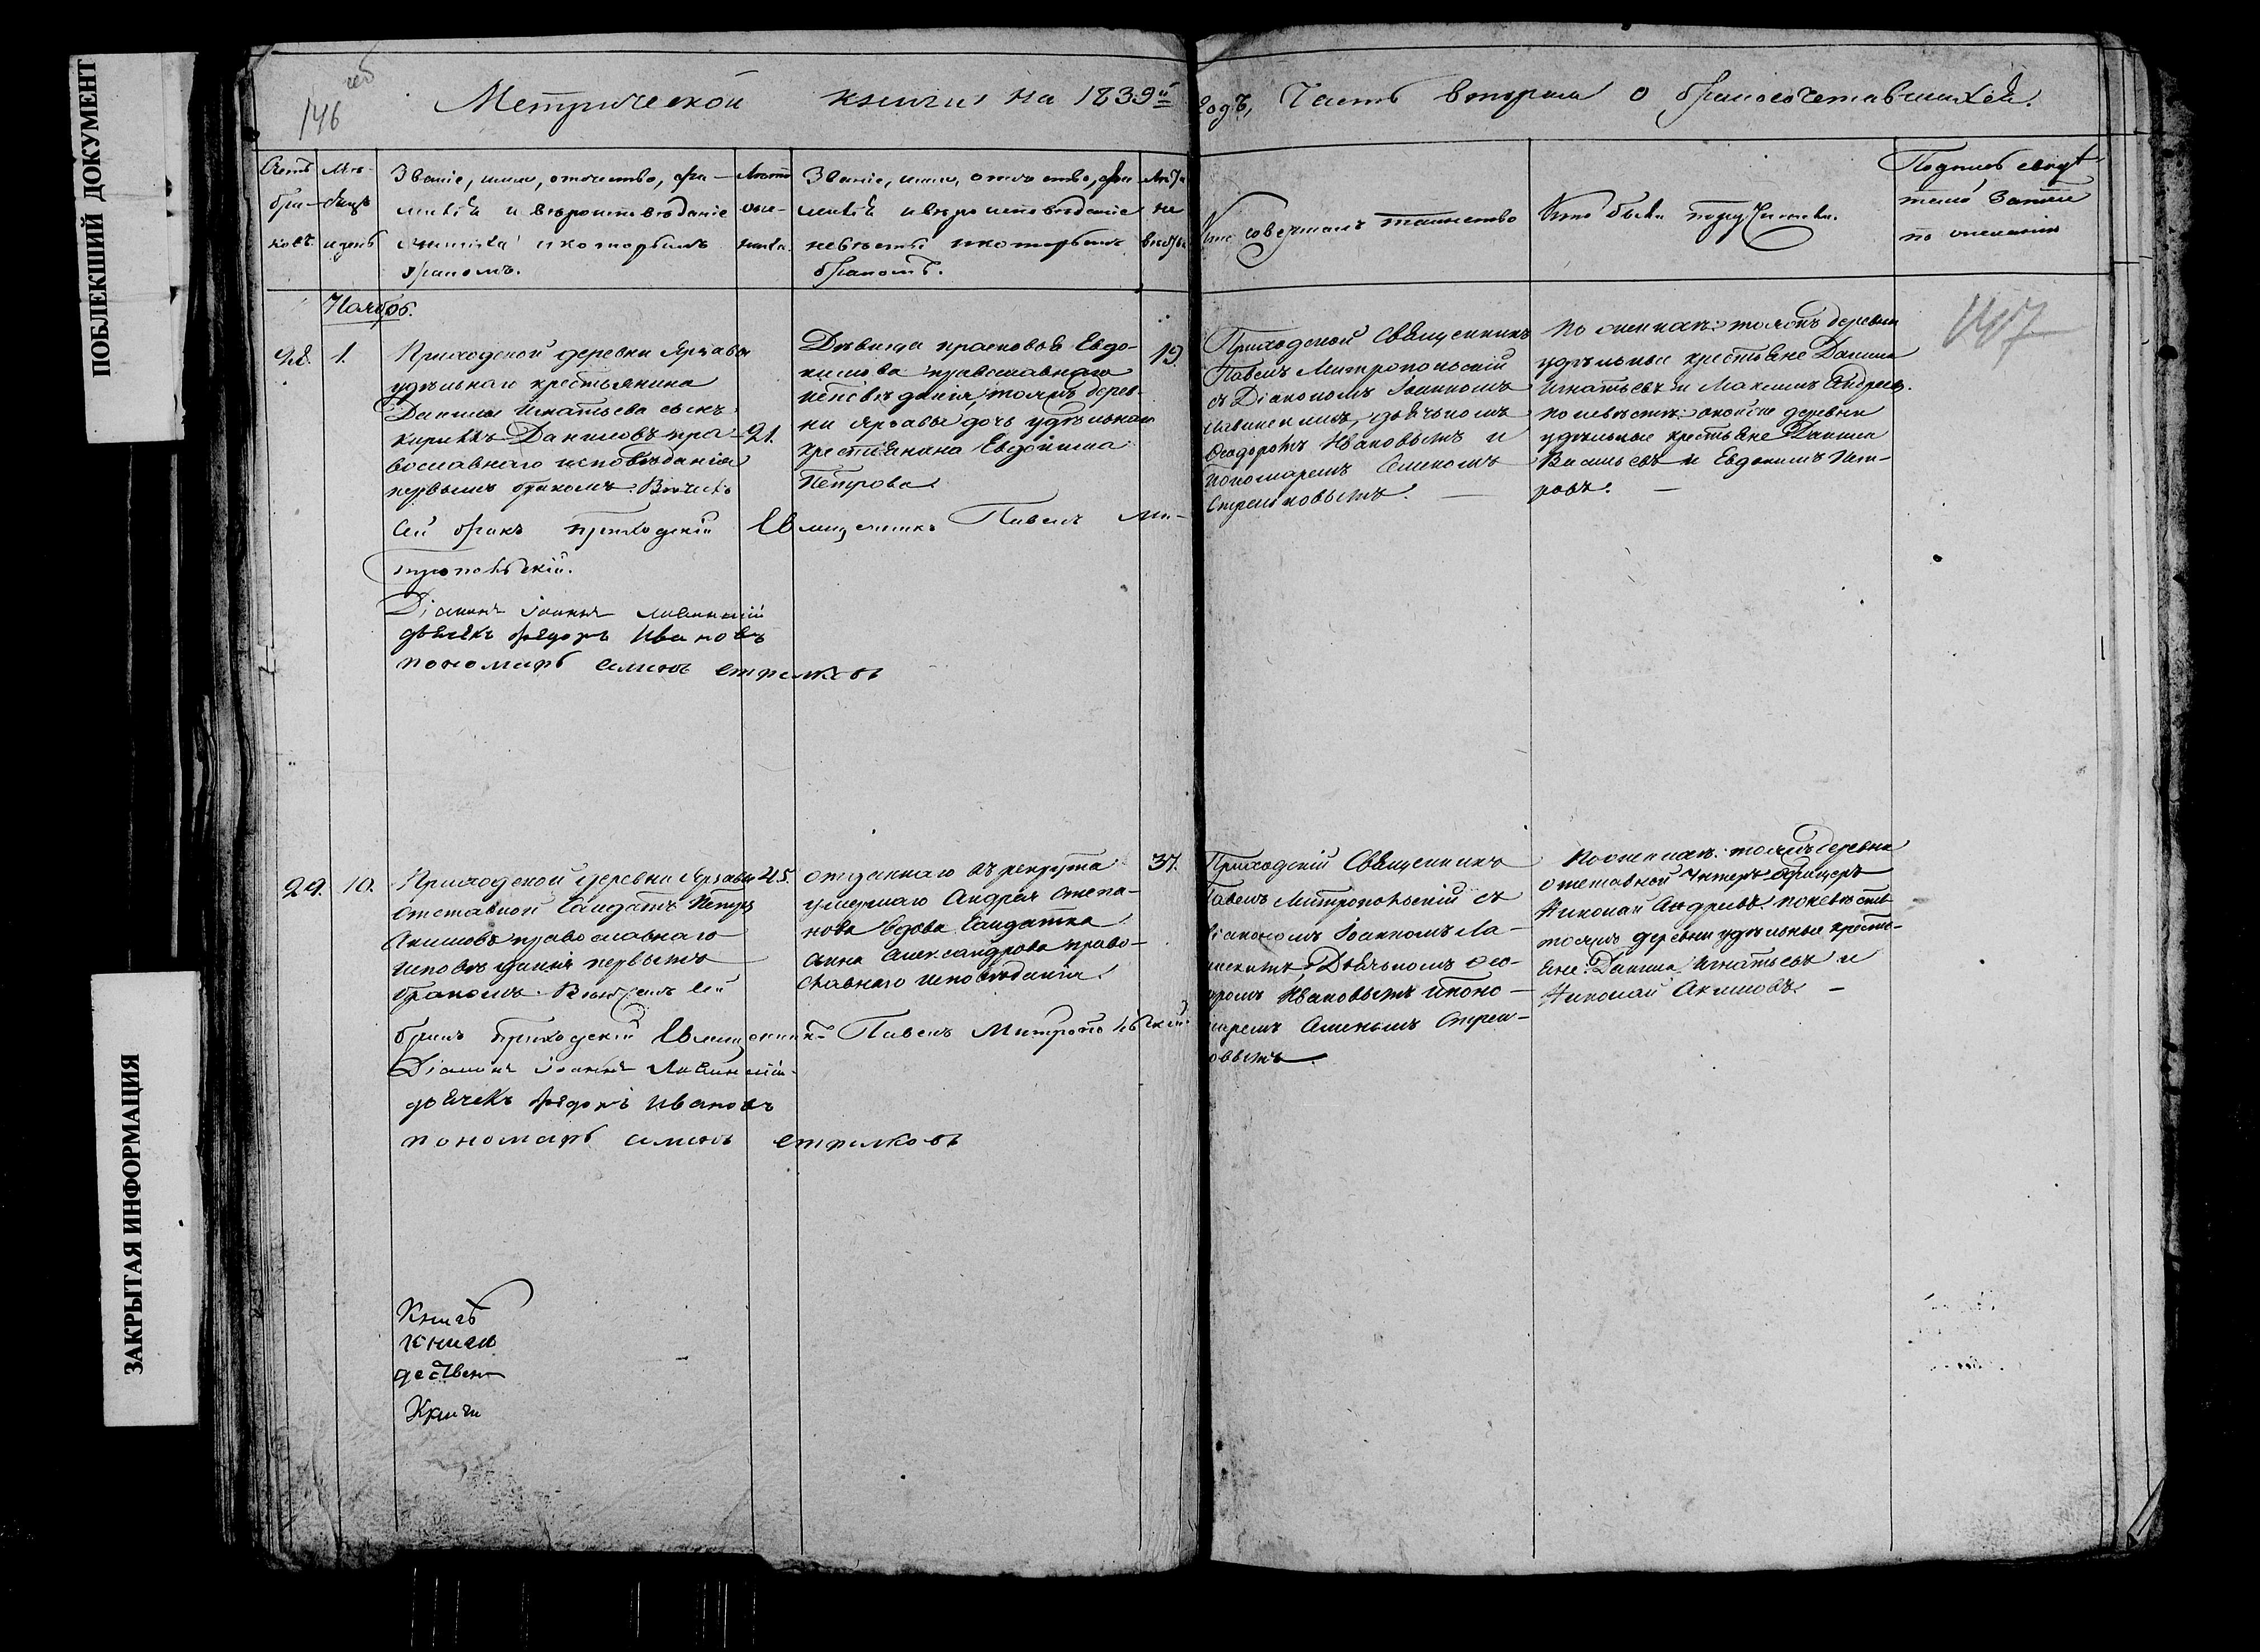 ПОБЛЕКШИЙ ДОКУМЕНТ
ЗАКРЫТАЯ ИНФОРМАЦИЯ
146
Метрической книги на 1839й
годъ, Часть вторая о бракосочетавшихся.
Счетъ
бра-
ковъ.
Мѣ-
сяцъ
и день
Званіе, имя, отчество, фа-
милія и вѣроисповѣданіе
жениха и которымъ
бракомъ.
Лѣта
жени-
ха.
Званіе, имя, отчество, фа-
милія и вѣроисповѣданіе
невѣсты и которымъ
бракомъ.
Лѣта
не
вѣсты
Кто совершалъ таинство
Кто были поручители.
Подпись свидѣ-
телей записи
по желанію
147
Ноябрь.
28.
1.
Приходской деревни Ярзавы
удѣльнаго крестьянина
Данилы Игнатьева сынъ
Кириллъ Даниловъ пра-
вославнаго исповѣданія
первымъ бракомъ. Вѣнчалъ
сей бракъ приходскій Священникъ Павелъ Ми-
тропольскій.
Діаконъ Іоаннъ Лавинскій
дьячекъ Ѳедоръ Ивановъ
пономарь Симонъ Стрелковъ
21.
Дѣвица Прасковья Евдо-
кимова православнаго
исповѣданія, тояжъ дерев-
ни Ярзавы дочь удѣльнаго
крестьянина Евдокима
Петрова.
19.
Приходской Священникъ
Павелъ Митропольскій
съ Діакономъ Іоанномъ
Лавинскимъ, дьячкомъ
Ѳеодоромъ Ивановымъ и
пономаремъ Симономъ
Стрелковымъ.
По женихѣ: тояжъ деревни
удѣльные крестьяне Данила
Игнатьевъ и Максимъ Андреевъ.
По невѣстѣ: оной же деревни
удѣльные крестьяне Данила
Васильевъ и Евдокимъ Пет-
ровъ.
29.
10.
Приходской деревни Ярзавы
отставной Солдатъ Петръ
Акимовъ православнаго
исповѣданія первымъ
бракомъ. Вѣнчалъ сей
бракъ приходскій Священникъ Павелъ Митропольскій
Діаконъ Іоаннъ Лавинскій
дьячекъ Ѳедоръ Ивановъ
пономарь Симонъ Стрелковъ
45.
отданнаго въ рекрута
умершаго Андрея Степа-
нова вдова Солдатка
Анна Александрова право-
славнаго исповѣданія.
37.
Приходскій Священникъ
Павелъ Митропольскій съ
Діакономъ Іоанномъ Ла-
винскимъ, Дьячкомъ Ѳео-
доромъ Ивановымъ и поно-
маремъ Симономъ Стрел-
ковымъ.
По женихѣ: тояжъ деревни
отставной Унтеръ-Офицеръ
Николай Андреевъ. по невѣстѣ
тояжъ деревни удѣльные кресть-
яне: Данила Игнатьевъ и
Николай Акимовъ.
Книгъ
книги
дествен
Книги